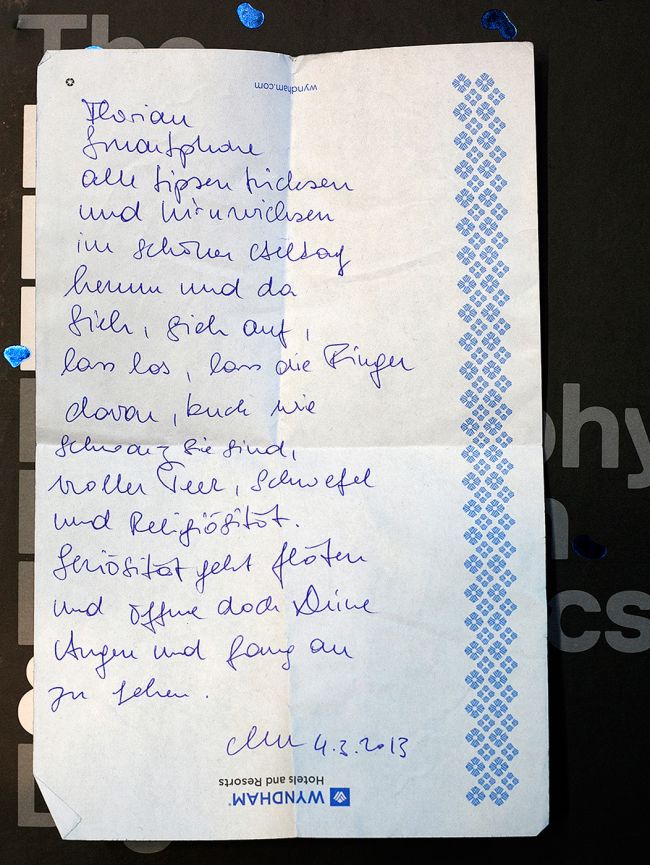 The
wyndham.com
Florian
Smartphone
alle tipsen tricksen
und hirnwichsen
im schönen Alltag
herum und da
Sieh, sieh auf,
lass los, lass die Finger
davon, kuck wie
schwarz sie sind,
voller Teer, Schwefel
und Religiösität.
Seriösität geht flöten
und öffne doch Deine
Augen und fang an
zu sehen.
4.3.2013
WYNDHAM®
Hotels and Resorts